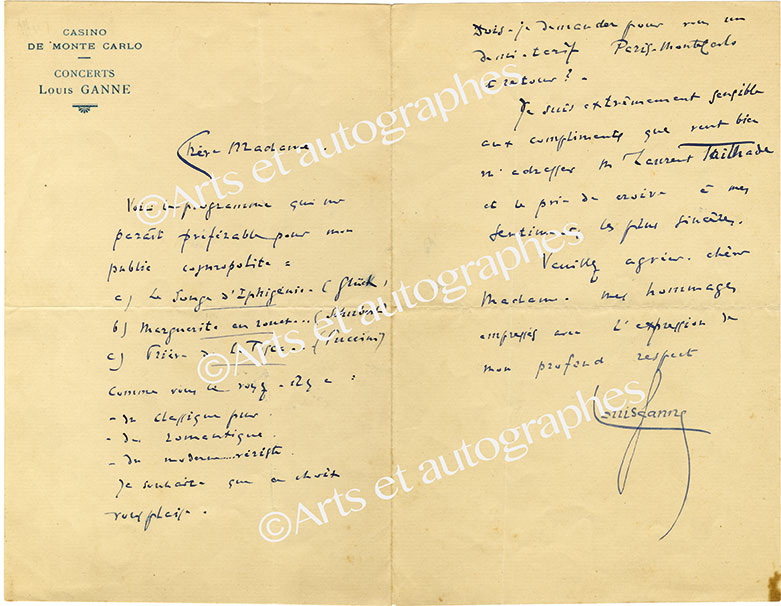 CASINO
DE MONTE CARLO
CONCERTS
LOUIS GANNE
Chère Madame.
Voici le programme qui me
paraît préférable pour mon
public cosmopolite =
a) Le Songe d'Iphigénie - (Glück)
b) Marguerite au rouet... (Schubert)
c) Prière de la Tosca .. (Puccini)
Comme vous le voyez - il y a :
- du classique pur.
- du romantique.
- du moderne vériste.
Je souhaite que ce choix
vous plaise.
Dois-je demander pour vous un
demi-tarif Paris-Monte Carlo
et retour ? -
Je suis extrêmement sensible
aux compliments que veut bien
m'adresser M Laurent Tailhade
et le prie de croire à mes
sentiments les plus sincères.
Veuillez agréer, chère
Madame. mes hommages
empressés avec l'expression de
mon profond respect
Louis Ganne
©Arts et autographes
©Arts et autographes
©Arts et autographes